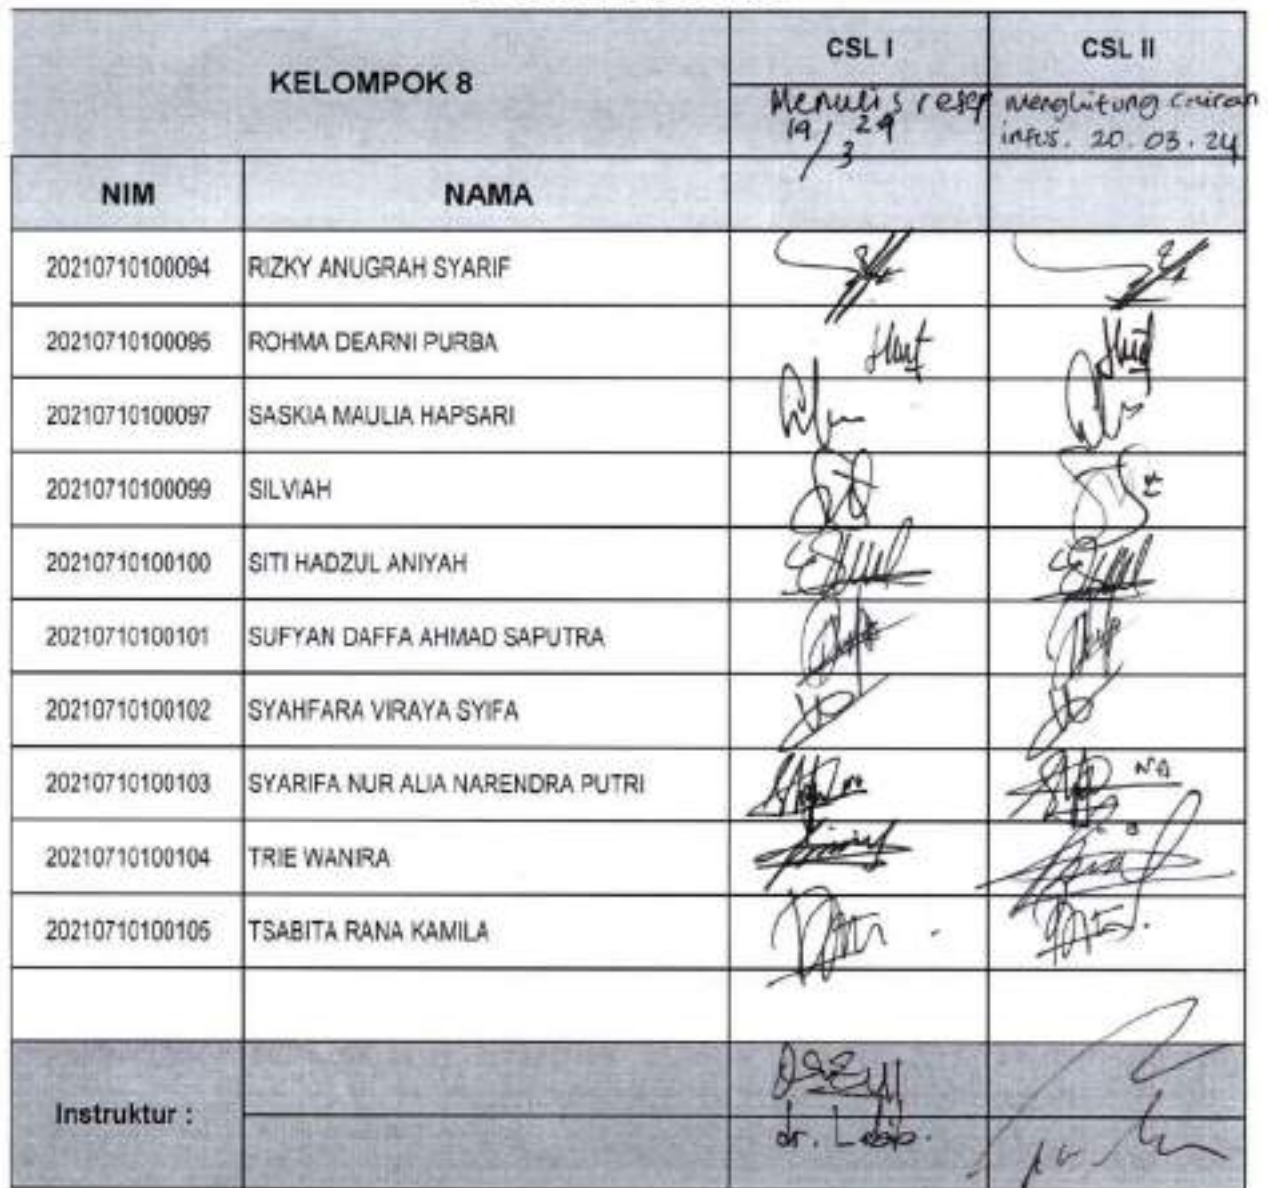 KELOMPOK 8
CSL I
CSL II
Menulis resep
19/3 24
menghitung cairan
infus. 20.03.24
NIM
NAMA
20210710100094 RIZKY ANUGRAH SYARIF
20210710100095 ROHMA DEARNI PURBA
20210710100097 SASKIA MAULIA HAPSARI
20210710100099 SILVIAH
20210710100100 SITI HADZUL ANIYAH
20210710100101 SUFYAN DAFFA AHMAD SAPUTRA
20210710100102 SYAHFARA VIRAYA SYIFA
20210710100103 SYARIFA NUR ALIA NARENDRA PUTRI
20210710100104 TRIE WANIRA
20210710100105 TSABITA RANA KAMILA
Instruktur :
dr.